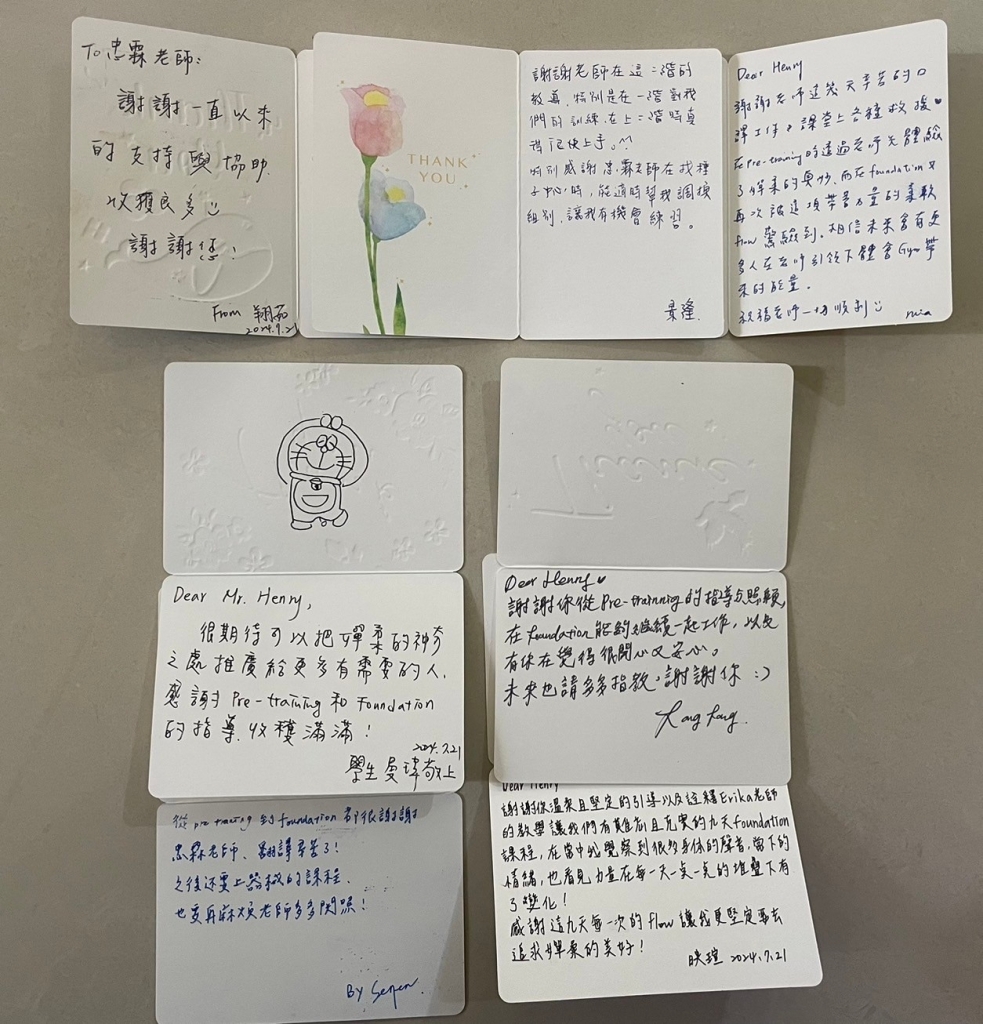 To 忠霖老師:
謝謝一直以來
的支持與協助.
收獲良多
謝謝您!
From 翔茹
2024.9.21
THANK
YOU
謝謝老師在這二階的
教導,特別是在一階對我
們的訓練,在上二階時真
得記快上手。^^
特別感謝忠霖老師在找種
子中心時,能適時幫我調換
組別,讓我有機會練習。
景逢.
Dear Henry
謝謝老师這幾天辛苦的口
譯工作及課堂上各種救援♥
在Pre-training時透過老师先體驗
了嬋柔的奧妙.而在foundation又
再次被這項帶著力量的柔軟
flow 驚艷到.相信未來會有更
多人在老师引領下體會Gyro帶
來的能量.
祝福老师一切順利
mia
Dear Mr. Henry,
很期待可以把嬋柔的神奇
之處推廣給更多有需要的人.
感謝 Pre-training 和 Foundation
的指導.收穫滿滿!
2024.7.21
學生 曼瑋敬上
Dear Henry ♥
謝謝你從 Pre-trainning 的指導与照顧,
在 foundation 能夠繼續一起工作,
有你在覺得很開心又安心。
未來也請多多指教,謝謝你 :)
從 pre training 到 foundation 都很謝謝
忠霖老師、翻譯辛苦了!
之後还要上器械的課程、
也要再麻煩老師多多関照!
By
Dear Henry
謝謝你溫柔且堅定的引導以及詮釋Erika老師
的教學讓我們有難忘且充實的九天foundation
課程,在當中我覺察到很多身体的聲音,當下的
情緒,也看見力量在每一天一点一点的堆疊下有
了變化!
感謝這九天每一次的flow 讓我更堅定要去
追求嬋柔的美好!
映瑄 2024.7.21